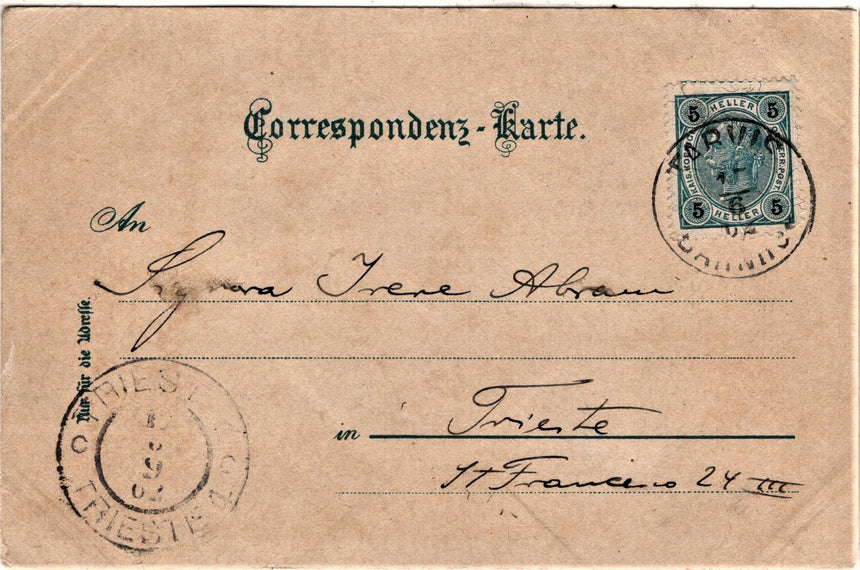 Correspondenz-Karte.
5 HELLER 5
KAIS. KÖN. ÖSTERR. POST.
5 HELLER 5
TARVIS
6
02
BAHNHOF
An
Signora Irene Abram
Nur für die Adresse.
in Trieste
St Francesco 24 III
TRIEST
02
TRIESTE